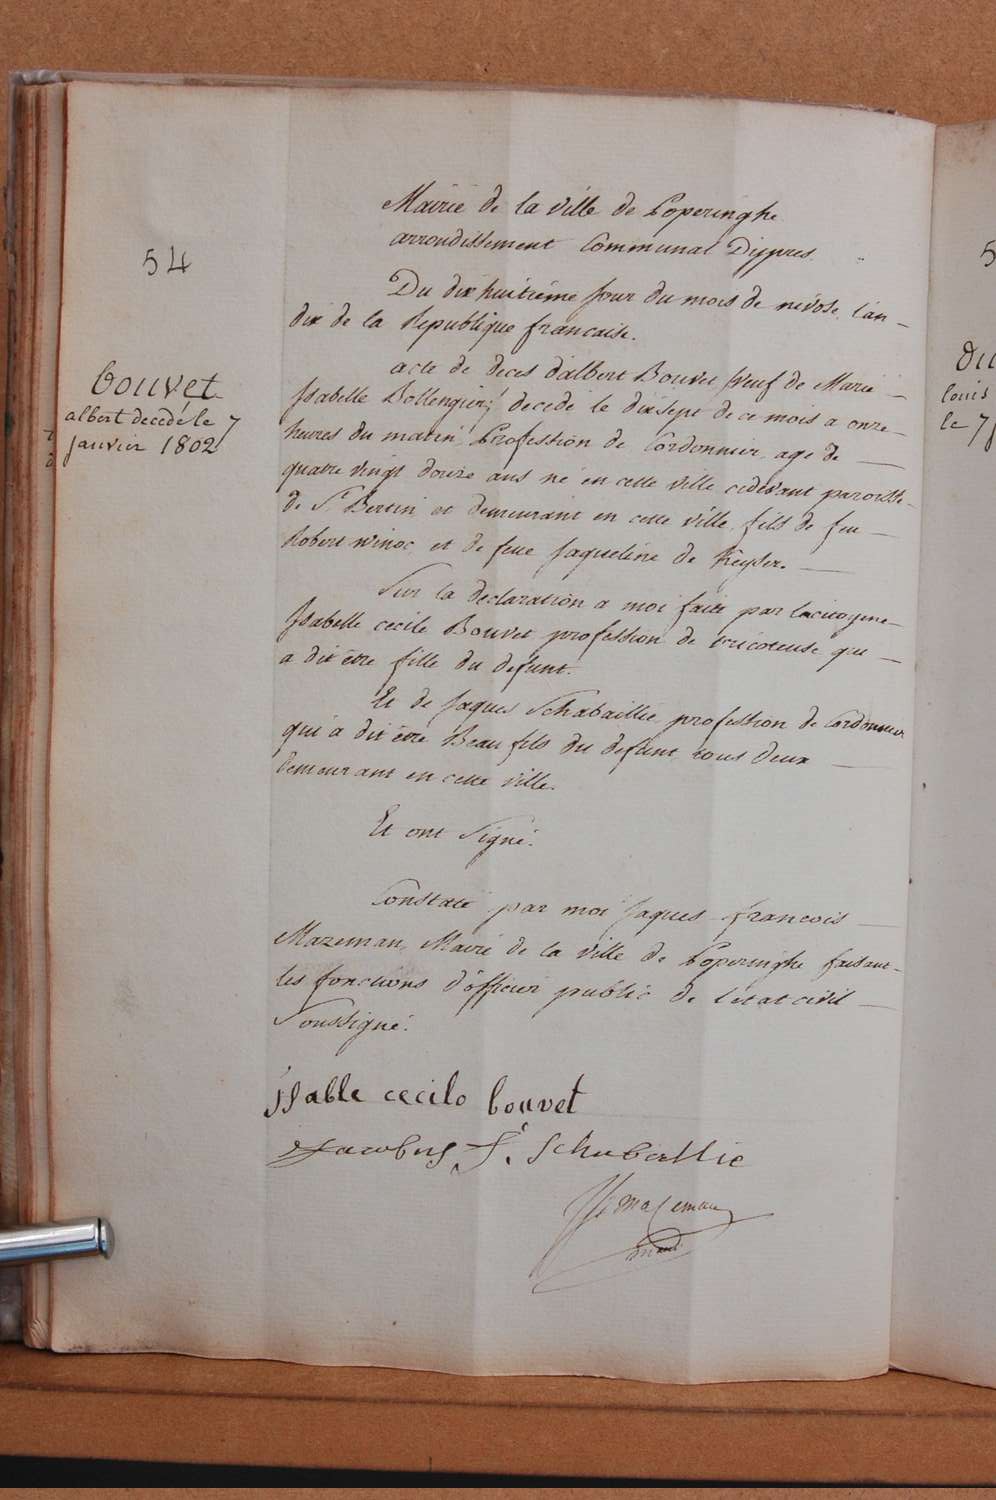 54
bouvet
albert decedé le 7
janvier 1802
Mairie de la ville de Poperinghe
arrondissement Communal Dijpres.
Du dix huitieme jour du mois de nivose, l'an
dix de la Republique francaise.
acte de deces d'albert Bouvet, veuf de Marie
Isabelle Bollengier, decedé le dix sept de ce mois a onze
heures du matin, Profession de Cordonnier, age de
quatre vingt douze ans né en cette ville cidevant paroisse
de St. Bertin et demeurant en cette ville, fils de feu
Robert winoc et de feue Jaqueline de Keyser.
Sur la declaration a moi faite par lacitoyene
Isabelle cecile Bouvet profession de tricoteuse qui
a dit être fille du defunt.
Et de Jaques Schabaillie, profession de Cordonnier
qui a dit être Beau fils du defunt, tous deux
demeurant en cette ville.
Et ont signé.
Constaté par moi Jaques francois
Mazeman, Maire de la ville de Poperinghe faisant
les fonctions d'officier public de l'état civil
Soussigné.
isable cecilo bouvet
Jacobus F. Schabaillie
Mazeman
5
louis
le 7